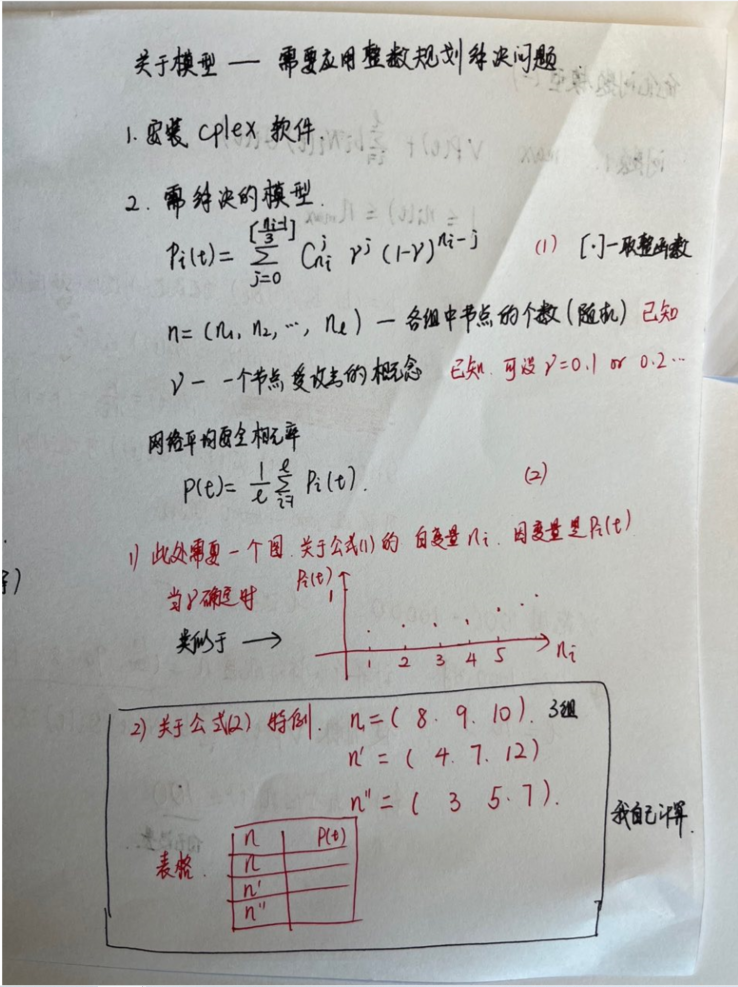 关于模型 — 需要应用整数规划解决问题
1. 安装 cplex 软件.
2. 需解决的模型.
Pi(t) = Σ_{j=0}^{[(ni-1)/3]} C_{ni}^{j} γ^j (1-γ)^{ni-j} (1) [·]—取整函数
n = (n1, n2, ..., nℓ) — 各组中节点的个数(随机) 已知
γ — 一个节点受攻击的概念 已知. 可设 γ=0.1 or 0.2...
网络平均安全概率
P(t) = 1/ℓ Σ_{i=1}^{ℓ} Pi(t). (2)
1) 此处需要一个图. 关于公式(1)的 自变量 ni. 因变量是 Pi(t)
当γ确定时
类似于 →
Pi(t)
1
1 2 3 4 5 ni
2) 关于公式(2) 特例. n = ( 8. 9. 10). 3组
n' = ( 4. 7. 12)
n'' = ( 3 5. 7).
我自己计算.
表格.
n P(t)
n
n'
n''